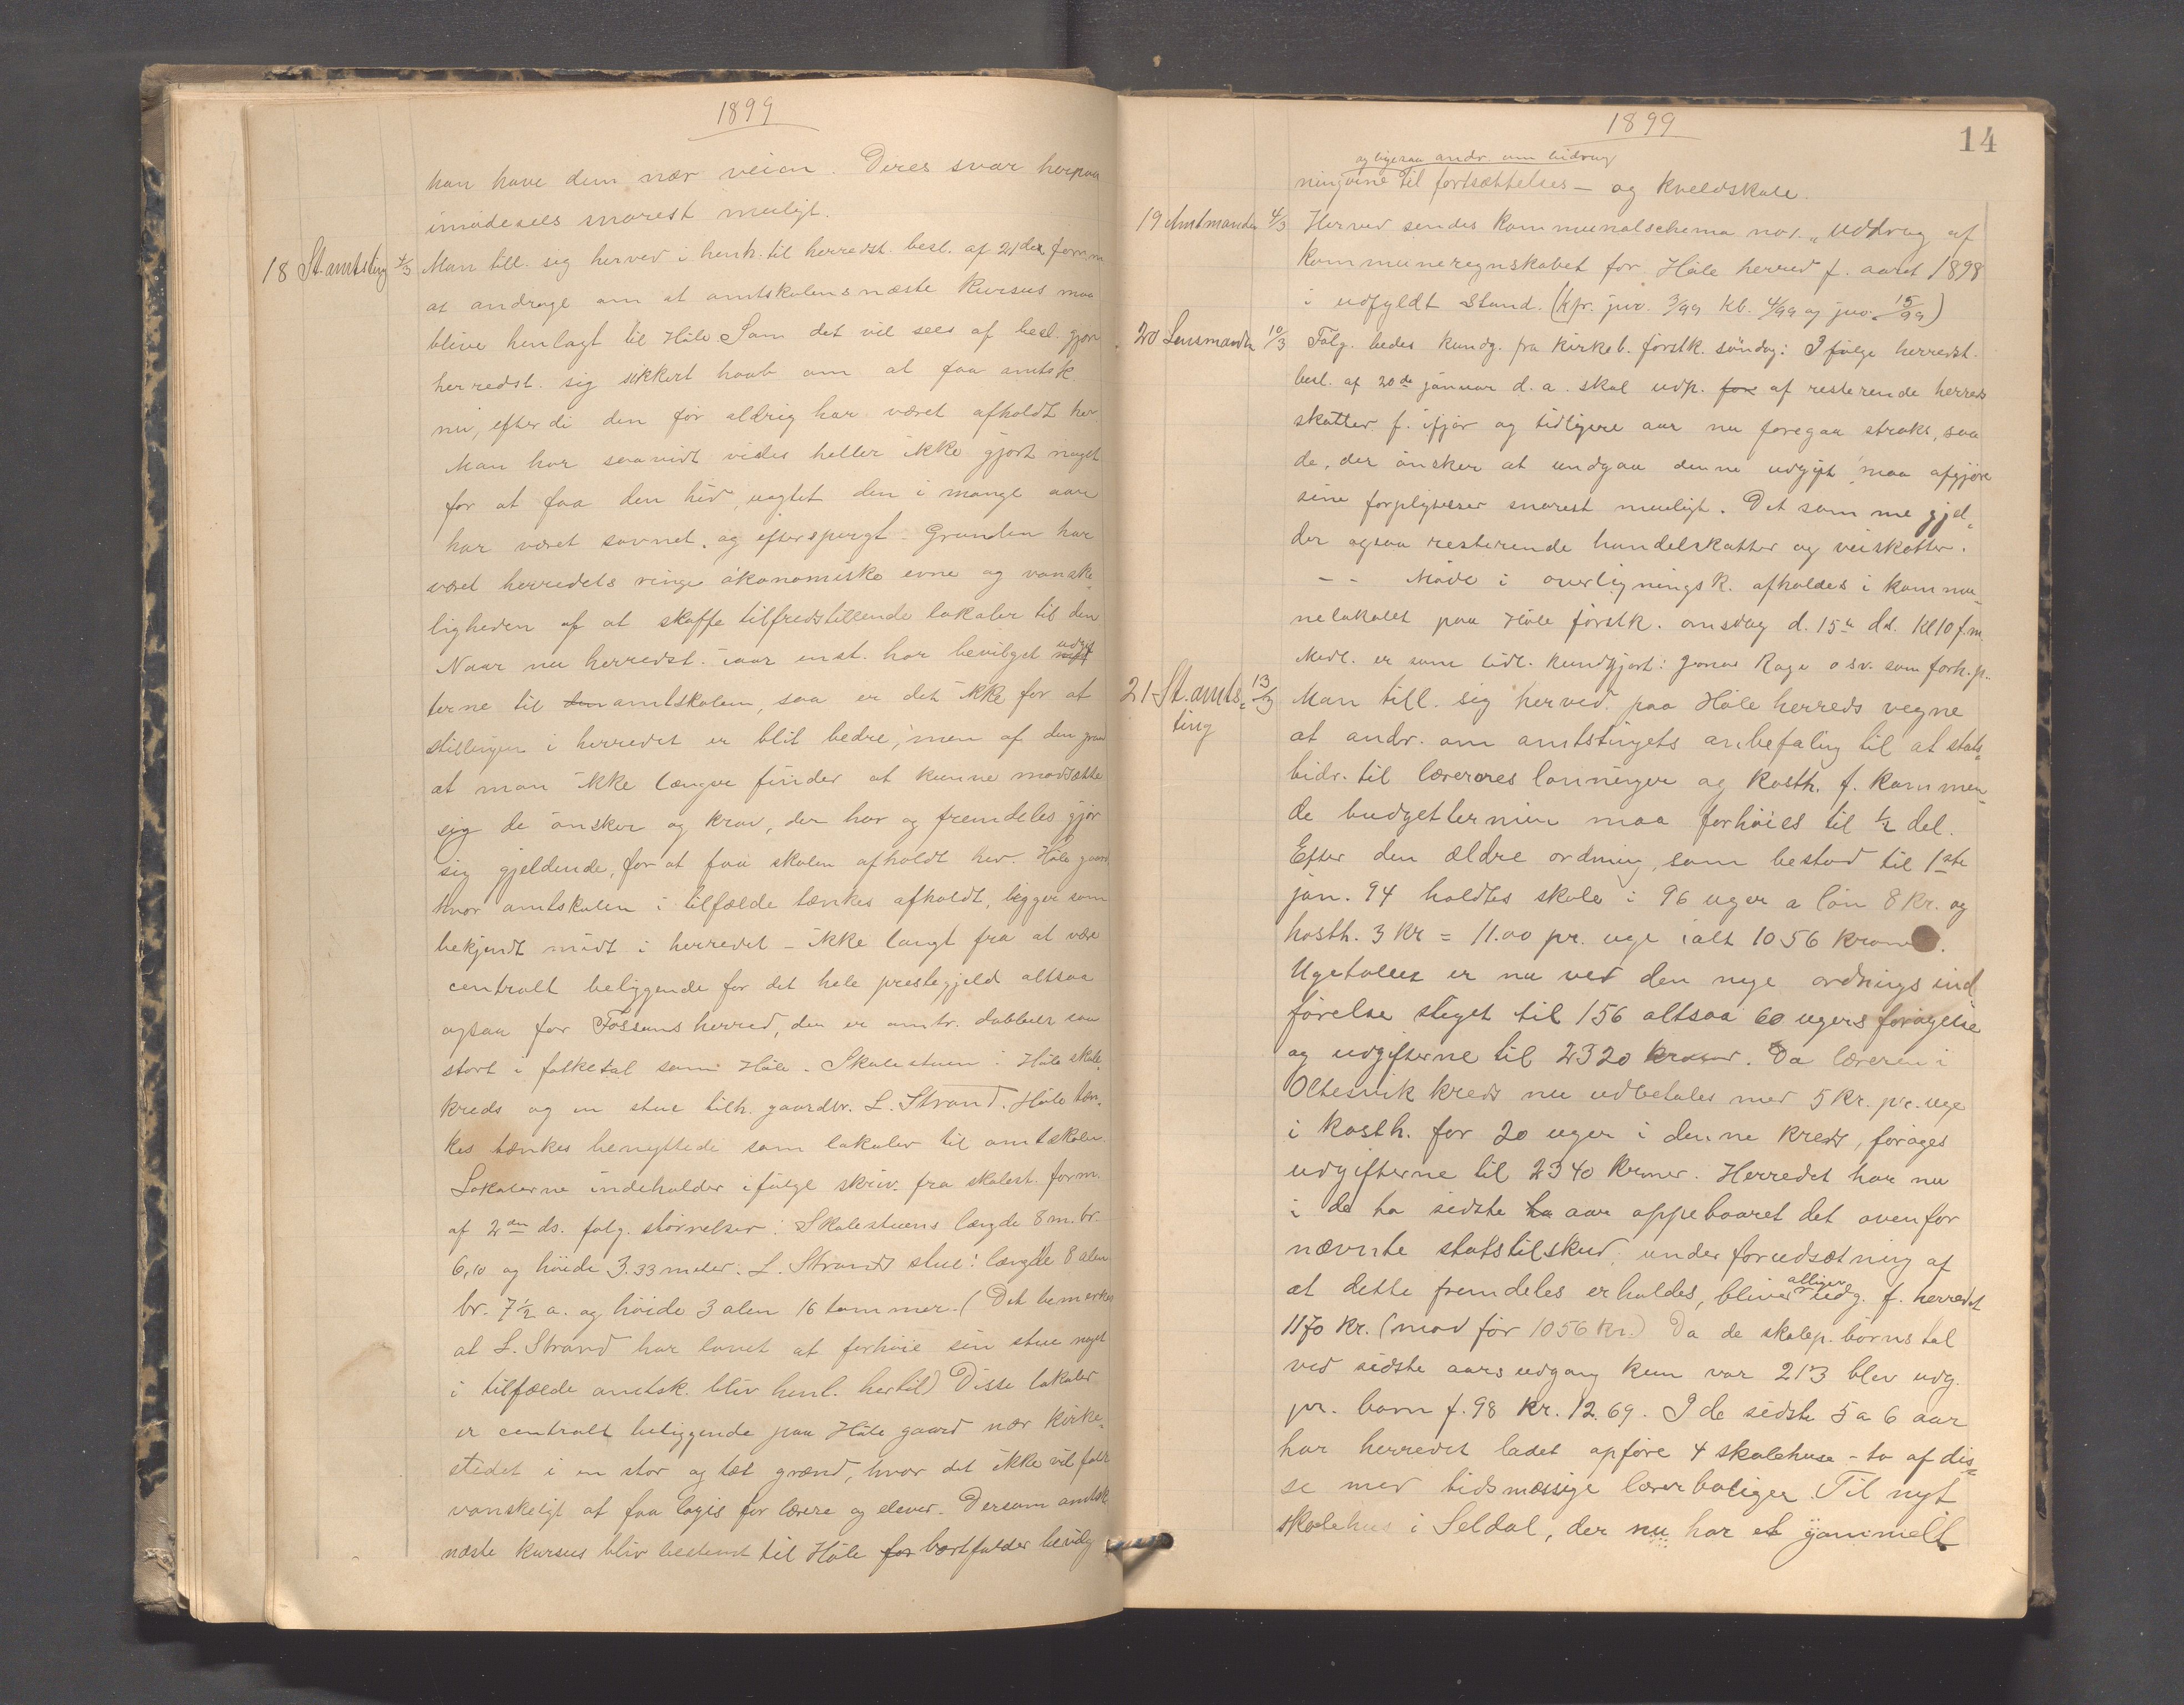 1899
kan have dem nær veien. Deres svar herpaa
imødesees snarest muligt.
18 St. amtsting 4/3 Man till. sig herved i henh. til herredst. besl. af 21de f. m.
at andrage om at amtskolens næste kursus maa
blive henlagt til Høle. Som det vil sees af besl. gjør
herredst. sig sikkert haab om at faa amtsk.
nu, efterdi den før aldrig har været afholdt her.
Man har saavidt vides heller ikke gjort noget
for at faa den hid, uagtet den i mange aar
har været savnet og efterspurgt. Grunden har
været herredets ringe økonomiske evne og vanske-
ligheden af at skaffe tilfredstillende lokaler til den
Naar nu herredst. iaar enst. har bevilget udgif
terne til den amtskolen, saa er det ikke for at
stillingen i herredet er blit bedre, men af den grund
at man ikke længre finder at kunne modsætte
sig de ønsker og krav, der har og fremdeles gjør
sig gjeldende, for at faa skolen afholdt her. Høle gaard,
hvor amtskolen i tilfælde tænkes afholdt, ligger som
bekjendt midt i herredet – ikke langt fra at være
centralt beliggende for det hele prestegjeld altsaa
ogsaa for Fossans herred, der er omtr. dobbelt saa
stort i folketal som Høle. Skolestuen i Høle skole-
kreds og en stue tilh. gaardbr. L. Strand. Høle tæn-
kes tænkes benyttede som lokaler til amtskolen.
Lokalerne indeholder ifølge skriv. fra skolest. form.
af 2den ds. følg. størrelser: Skolestuens længde 8 m. br.
6,10 og høide 3.33 meter. L. Strands stue: længde 8 alen
br. 7½ a. og høide 3 alen 16 tommer. (Det bemerkes
at L. Strand har lovet at forhøie sin stue noget
i tilfælde amtsk. bliv henl. hertil) Disse lokaler
er centralt beliggende paa Høle gaard nær kirke-
stedet i en stor og tæt grænd, hvor det ikke vil falde
vanskeligt at faa logis for lærere og elever. Dersom amtsk.
næste kursus bliv bestemt til Høle for bortfalder bevilg
14
1899
og ligesaa andr. om bidrag
ningerne til fortsættelses – og kveldskole.
19 Amtmanden 4/3 Herved sendes kommunalschema no 1. „Uddrag af
kommuneregnskabet for Høle herred f. aaret 1898
i udfyldt stand. (kfr. jvr. 3/99 kb. 4/99 og jvr. 15/99)
20 Lensmanden 10/3 Følg. bedes kundg. fra kirkeb. førstk. søndag: Ifølge herredst.
besl. af 20de januar d. a. skal udp. for af resterende herreds
skatter f. ifjor og tidligere aar nu foregaa straks, saa
de, der ønsker at undgaa denne udgift maa afgjøre
sine forpligtelser snarest muligt. Det samme gjel-
der ogsaa resterende hundeskatter og veiskatter.
– – Møde i overligningsk. afholdes i kommu-
nelokalet paa Høle førstk. onsdag d. 15de ds. kl 10 f.m.
Medl. er som tidl. kundgjort: Jonas Rage o sv. som forh. p.
21 St. amts- 13/3 Man till. sig herved paa Høle herreds vegne
ting at andr. om amtstingets anbefaling til at stats-
bidr. til lærernes lønninger og kosth. f. kommen-
de budgettermin maa forhøies til ½ del.
Efter den ældre ordning, som bestod til 1ste
jan. 94 holdtes skole i 96 uger a løn 8 kr. og
kosth. 3 kr = 11.00 pr. uge ialt 1056 kroner.
Ugetallet er nu ved den nye ordnings ind
førelse steget til 156 altsaa 60 ugers forøgelse
og udgifterne til 2320 kroner. Da læreren i
Oltesvik kreds nu udbetales med 5 kr. pr. uge
i kosth. for 20 uger i denne kreds, forøges
udgifterne til 2340 kroner. Herredet har nu
i de to sidste to aar oppebaaret det ovenfor
nævnte statstilskud, under forudsætning af
at dette fremdeles erholdes, bliver alligev. udg. f. herredet
1170 kr. (mod før 1056 kr.) Da de skolep. børns tal
ved sidste aars udgang kun var 213 blev udg.
pr. barn f. 98 kr. 12.69. I de sidste 5 a 6 aar
har herredet ladet opføre 4 skolehuse – to af dis-
se med tidsmæssige lærerboliger. Til nyt
skolehus i Seldal, der nu har et gammelt